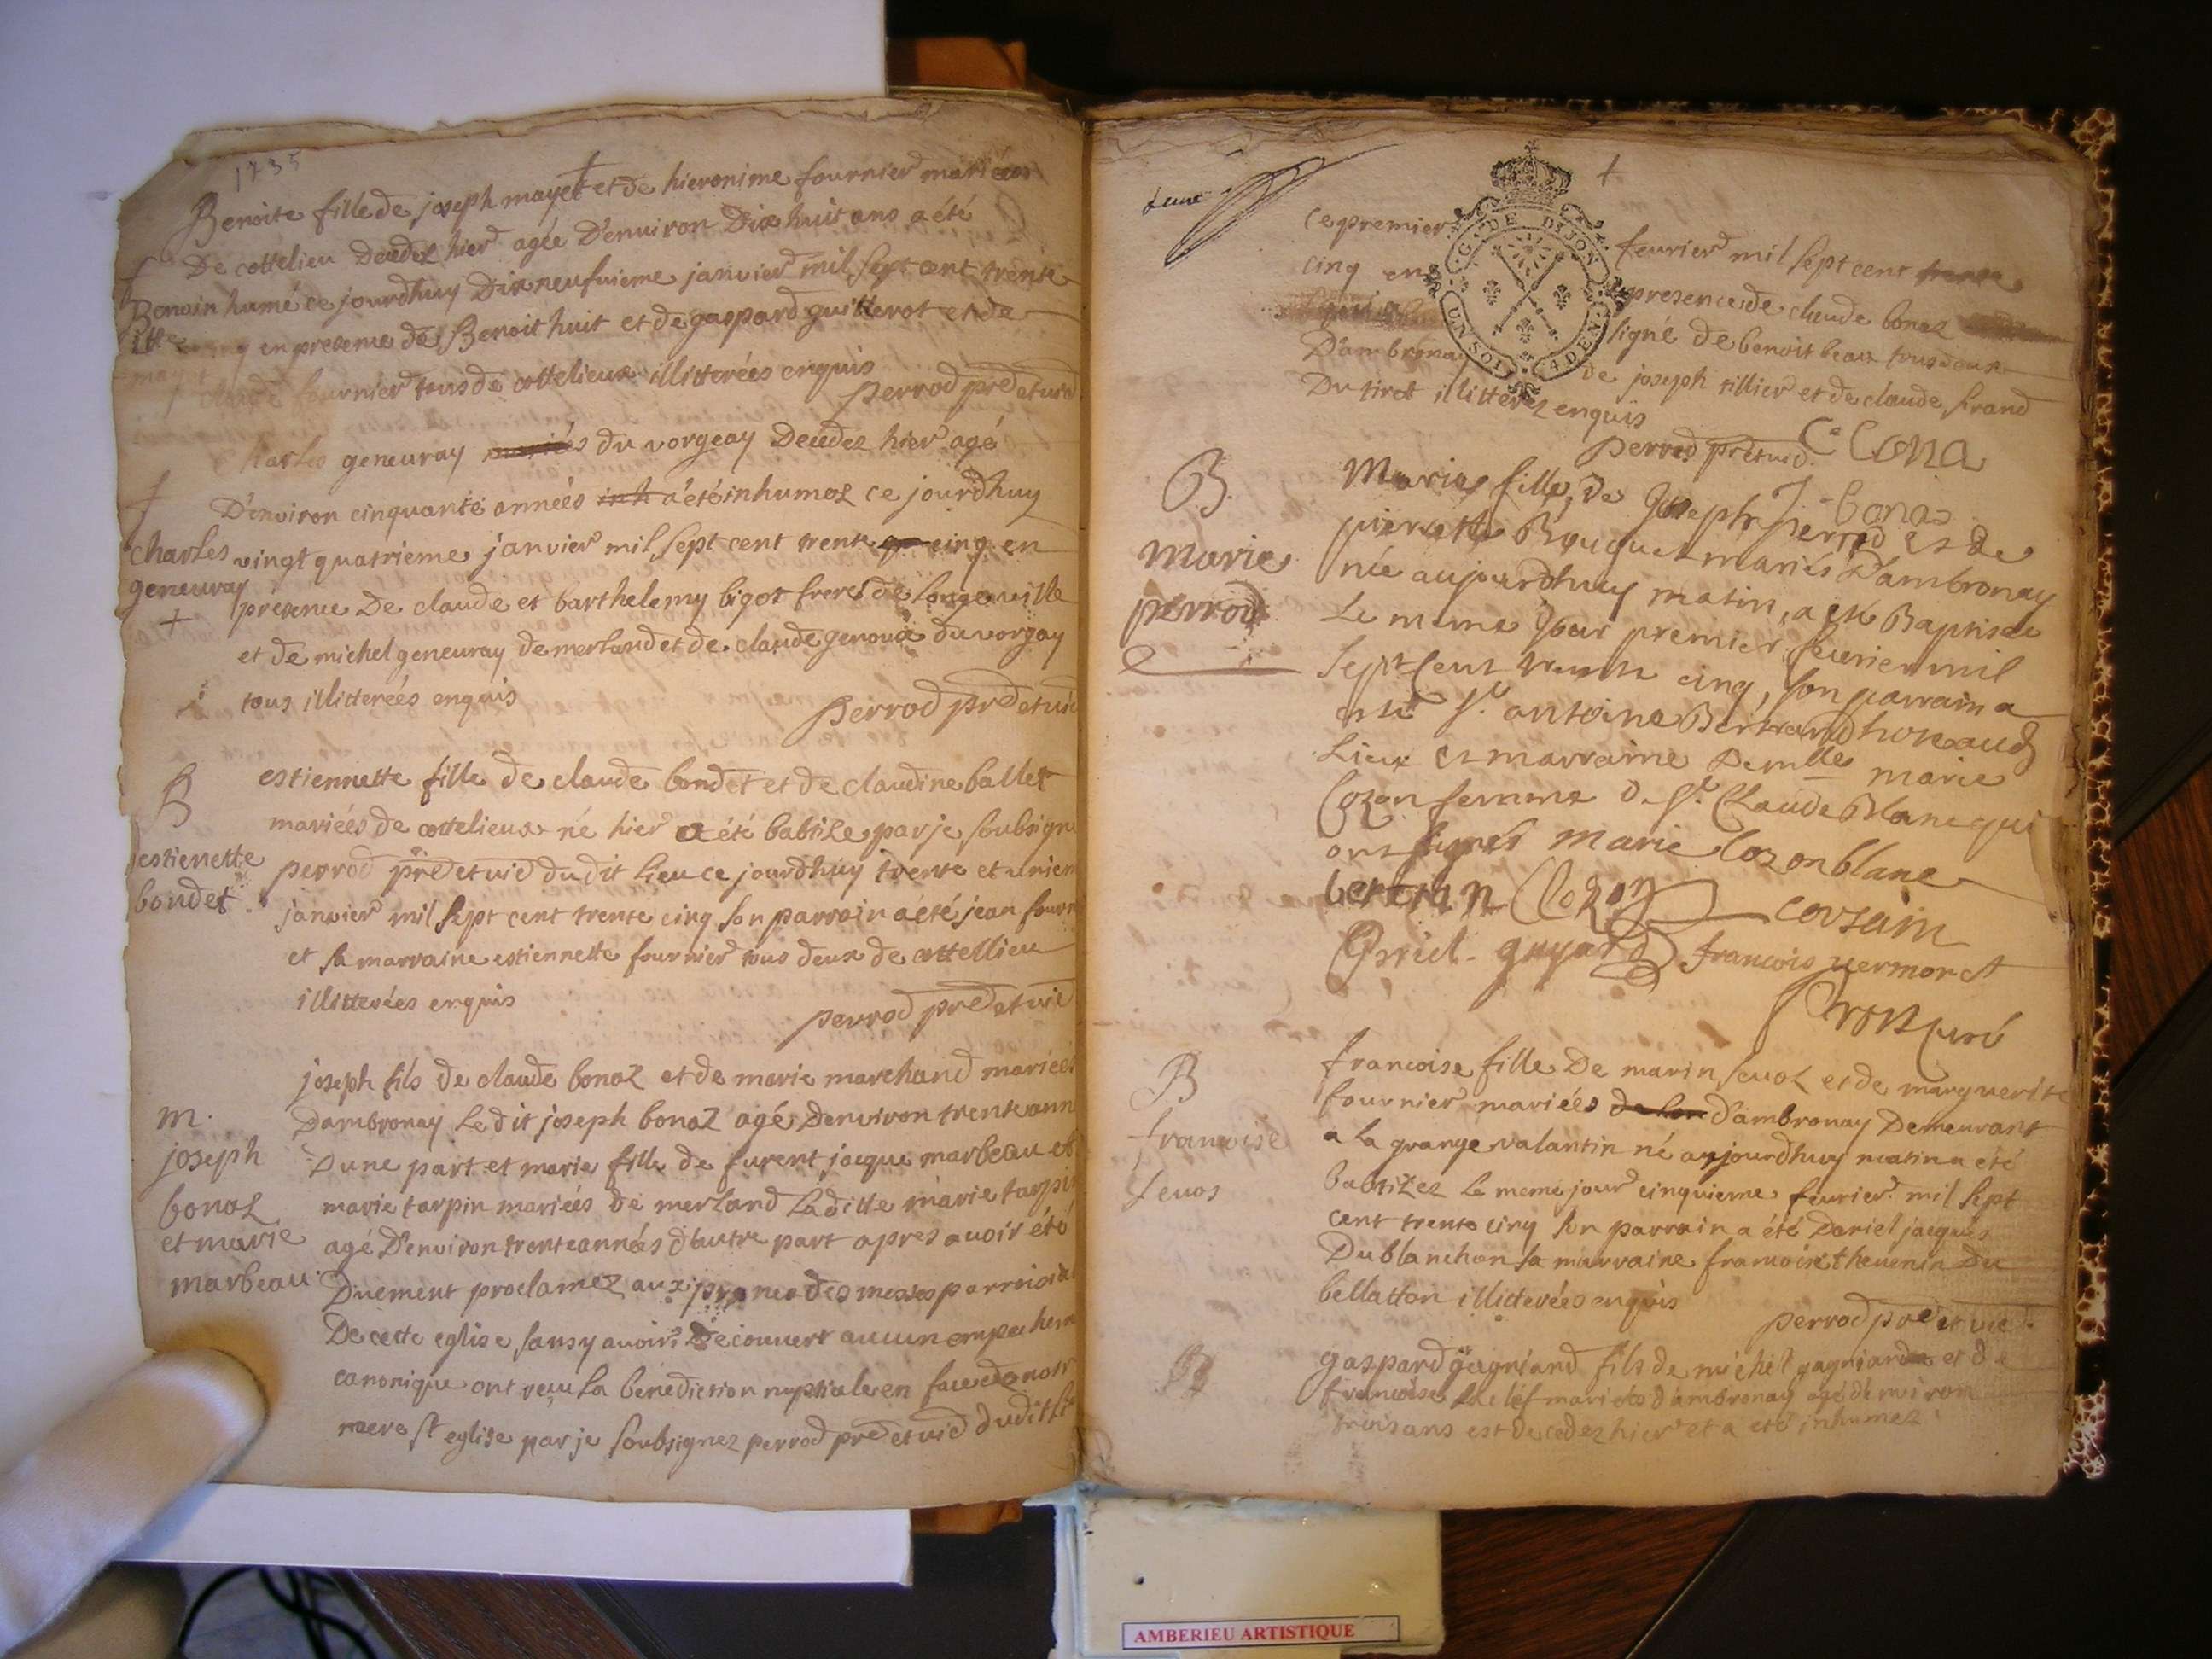 1735
Benoite fille de joseph mayet et de hieronime fournier mariées
De cottelieu Decedez hier agée D'environ Dix huit ans a été
inhumé ce jourdhuy Dix neufuieme janvier mil sept cent trente
cinq en presence de Benoit huit et de gaspard guitterot et de
claude fournier tous de cottelieux illitterées enquis
perrod prê et vic
charles geneuray mariés du vorgeay Decedez hier agé
D'environ cinquante années inh a été inhumez ce jourdhuy
charles
geneuray
vingt quatrieme janvier mil sept cent trente cinq en
présence De claude et barthelemy bigot freres de longeville
et de michel geneuray de merland et de claude genoux du vorgay
tous illitterées enquis
perrod prê et vic
B
estienette
bondet
estiennette fille de claude bondet et de claudine ballet
mariées de cottelieux né hier a été babtize par je soubsigne
perrod prê et vic du dit lieu ce jourdhuy trente et uniem
janvier mil sept cent trente cinq son parrain a été jean fourn
et sa marraine estiennette fournier tous deux de cottellieu
illitterées enquis
perrod prê et vic
m.
joseph
bonaz
et marie
marbeau
joseph fils de claude bonaz et de marie marchand mariées
Dambronay Le dit joseph bonaz agé Denviron trente ann
Dune part et marie fille de furent jacque marbeau et
marie tarpin mariées de merland La ditte marie tarpi
agé D'environ trente années d'autre part apres avoir été
Duement proclamez aux prones des messes parroissia
De cette eglise sans y avoir Decouvert aucun empechem
canonique ont reçu la benediction nuptiale en face de notr
mere st eglise par je soubsignez perrod prê et vic du dit
ce premier fevrier mil sept cent trente
cinq en presence de claude bonaz
signé de benoit beau tous deux
D'ambronay de joseph tillier et de claude frand
Du tiret illitterez enquis
perrod prê vic. C. bona
J. bonaz
B.
marie
perrod
Marie fille de Joseph perrod et de
pierrette Bouquet mariés D'ambronay
née aujourdhuy matin, a été Baptisée
Le meme Jour premier fevrier mil
Sept Cent trente cinq, son parrain a
esté Sr. antoine Bertrand
Lieux et marraine Demlle marie
Cozon femme d. Sr. Claude Blanc qui
ont signés marie Cozon blanc
bertran Cozon cozain
Gabriel guyard francois vermoret
Curé
B
francoise
fevos
francoise fille De marin fevoz et de marguerite
fournier mariées D'ambronay Demeurant
a la grange valantin né aujourdhuy matin a été
babtizez le meme jour cinquieme fevrier mil sept
cent trente cinq son parrain a été Daniel jacques
Du blanchon sa marraine francoise thevenin Du
bellatton illitterées enquis
perrod prê et vic
gaspard gagniard fils de michel gagniard et de
francoise mariées d'ambronay agé denviron
trois ans est decedez hier et a été inhumez
G. DE DIJON
UN SOL
4 DEN.
AMBERIEU ARTISTIQUE